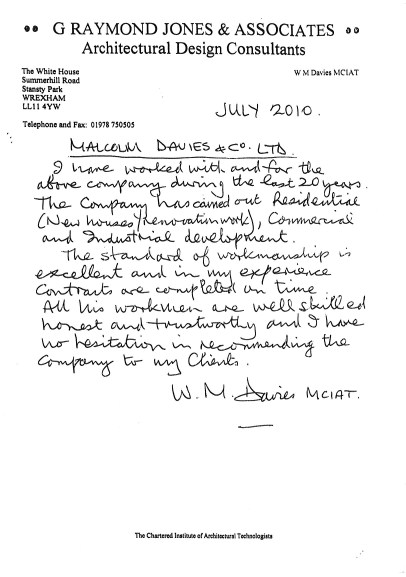 G RAYMOND JONES & ASSOCIATES
Architectural Design Consultants
The White House
Summerhill Road
Stansty Park
WREXHAM
LL11 4YW
W M Davies MCIAT
JULY 2010.
Telephone and Fax: 01978 750505
MALCOLM DAVIES & CO. LTD.
I have worked with and for the
above company during the last 20 years.
The Company has carried out Residential
(New houses/renovation work), Commercial
and Industrial development.
The standard of workmanship is
excellent and in my experience
Contracts are completed on time.
All his workmen are well skilled
honest and trustworthy and I have
no hesitation in recommending the
Company to my Clients.
W. M. Davies MCIAT.
The Chartered Institute of Architectural Technologists